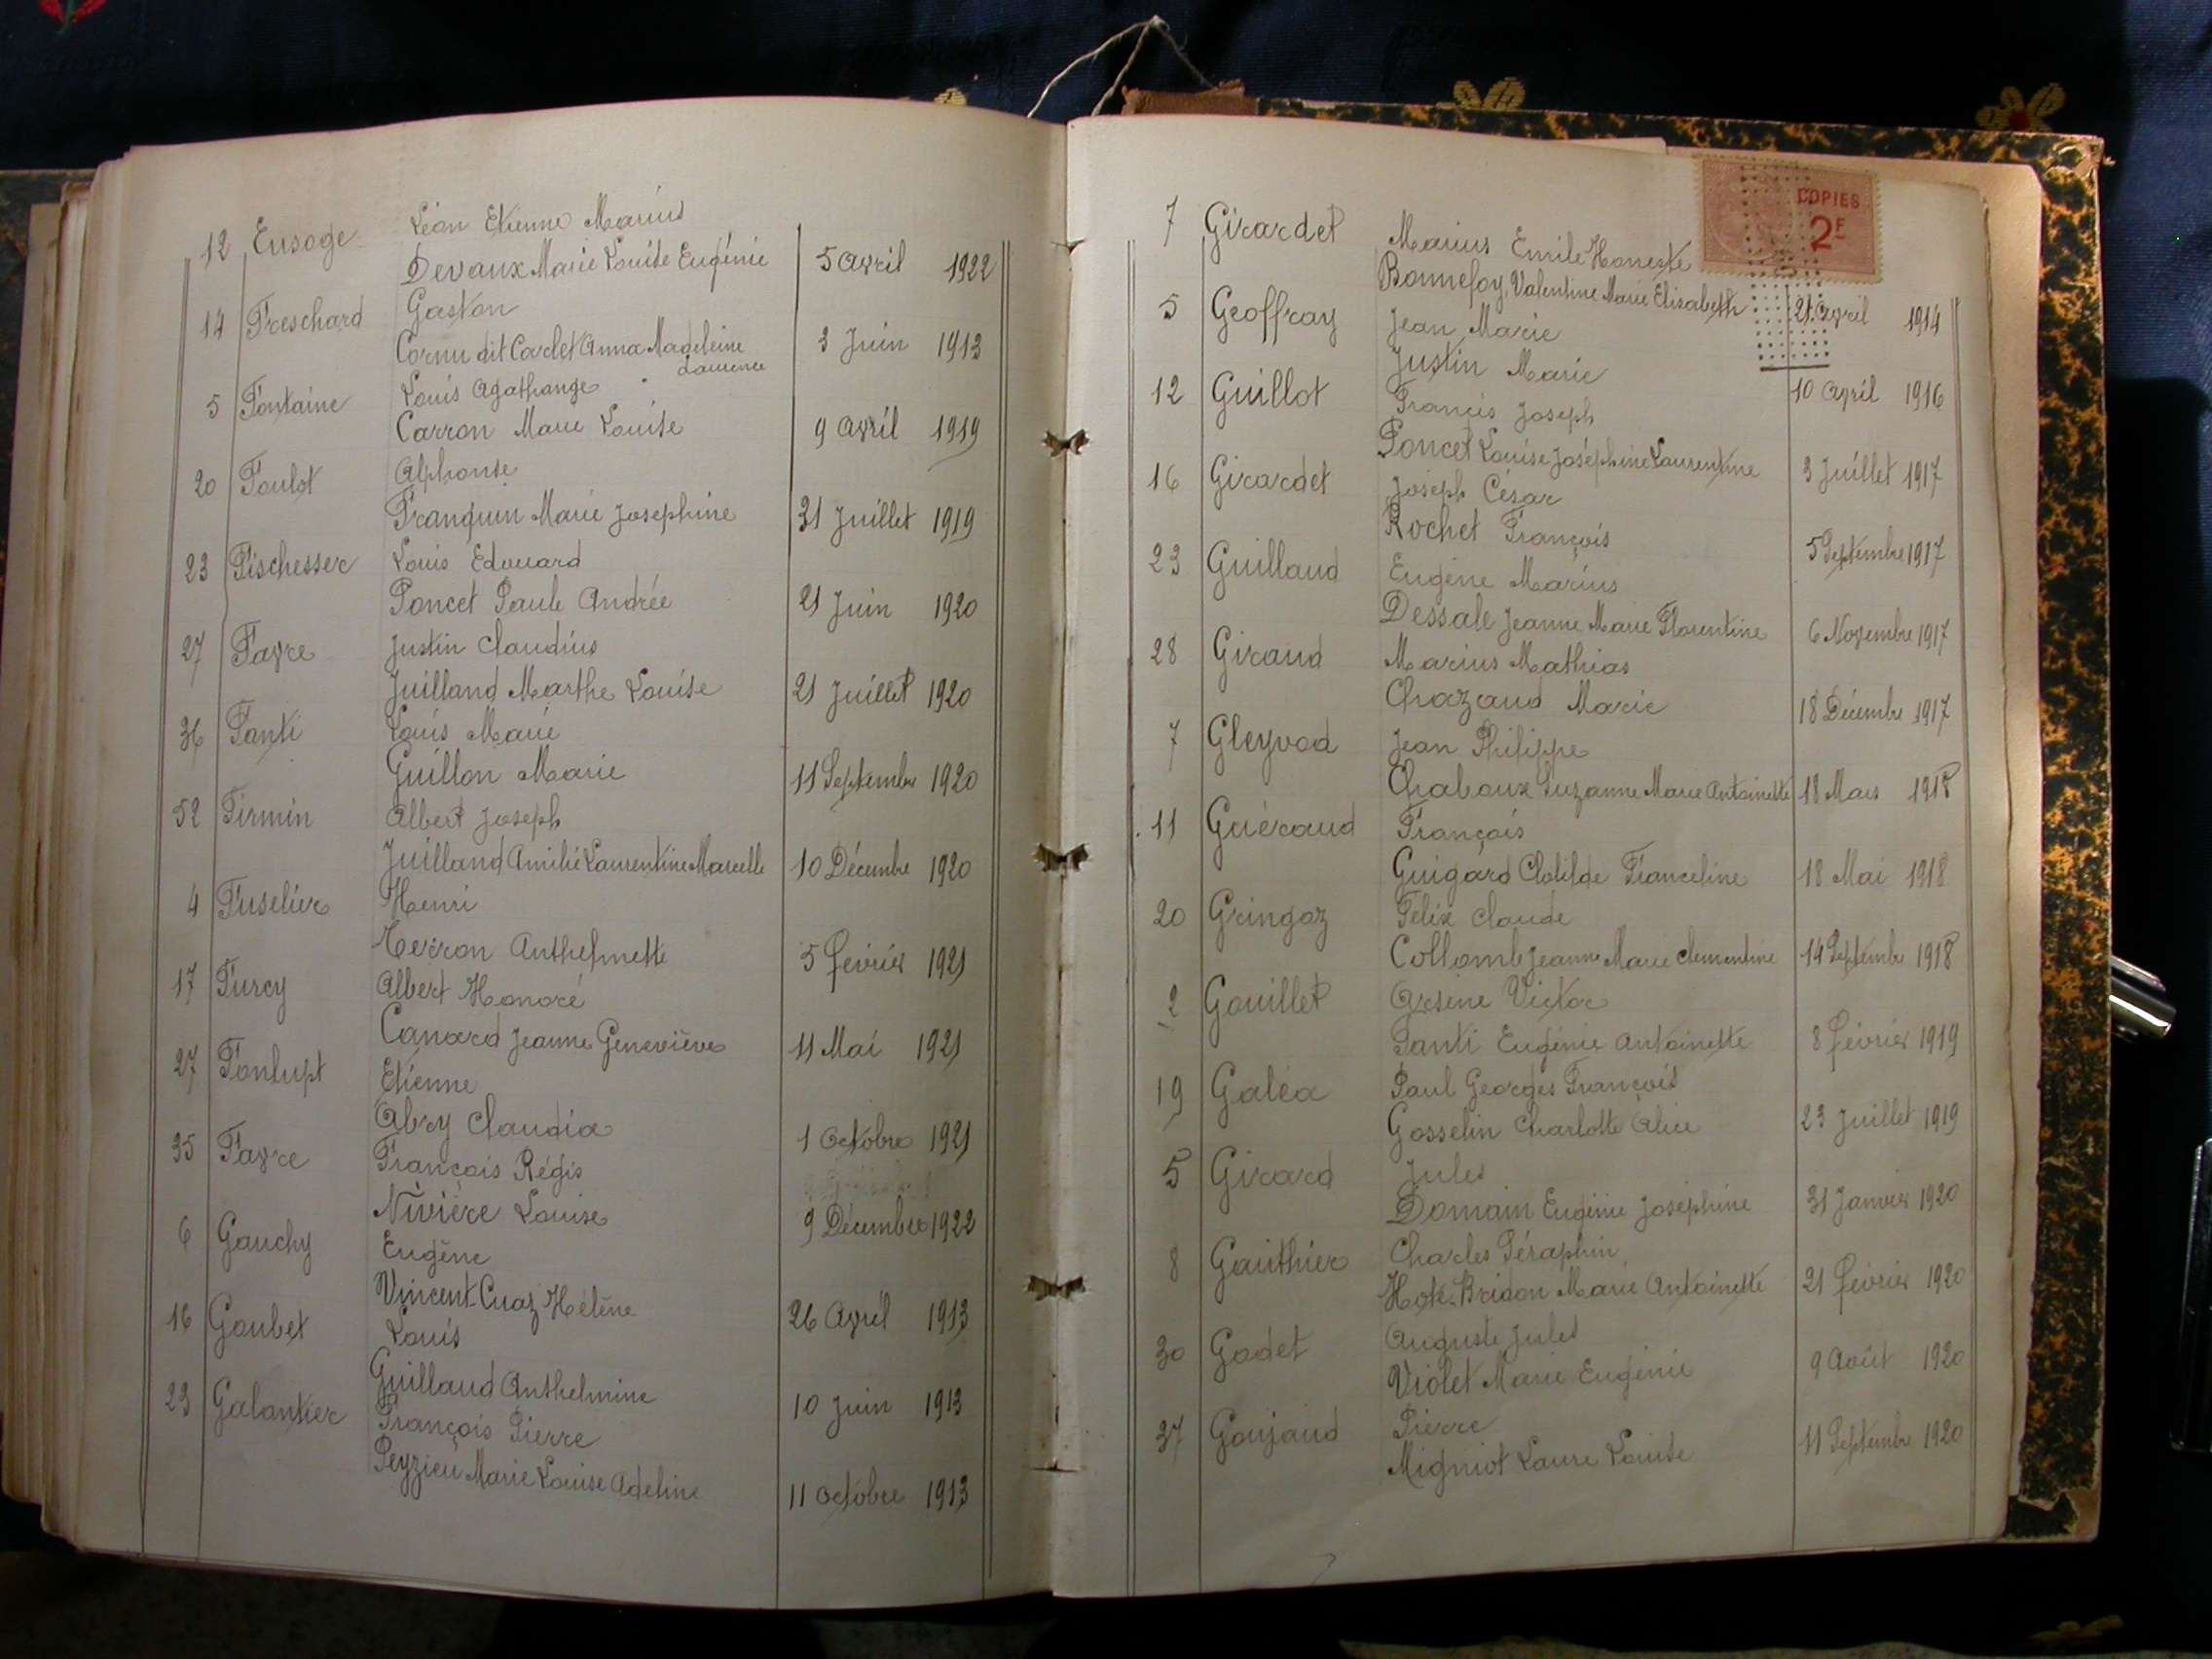 12 Eusoge Léon Etienne Marius
Devaux Marie Louise Eugénie 5 Avril 1922
14 Freschard Gaston
Cornu dit Carlet Anna Madeleine 3 Juin 1913
Laurence
5 Fontaine Louis Agathange
Carron Marie Louise 9 Avril 1919
20 Foulot Alphonse
Franquin Marie Josephine 31 Juillet 1919
23 Fischesser Louis Edouard
Poncet Paule Andrée 21 Juin 1920
27 Favre Justin Claudius
Juilland Marthe Louise 21 Juillet 1920
36 Fanti Louis Marie
Guillon Marie 11 Septembre 1920
52 Firmin Albert Joseph
Juilland Amélie Laurentine Marcelle 10 Décembre 1920
4 Fuselier Henri
Terron Anthelmette 5 février 1921
17 Furcy Albert Honoré
Canard Jeanne Geneviève 11 Mai 1921
27 Fonlupt Etienne
Abry Claudia 1 Octobre 1921
35 Favre François Régis
Nivière Louise 9 Décembre 1922
6 Gauchy Eugène
Vincent-Cuaz Hélène 26 Avril 1913
16 Goubet Louis
Guillaud Anthelmine 10 Juin 1913
23 Galantier François Pierre
Peyzieu Marie Louise Adeline 11 Octobre 1913
COPIES
2F
7 Girardet Marius Emile Honeste
Bonnefoy Valentine Marie Elisabeth 21 Avril 1914
5 Geoffray Jean Marie
Justin Marie 10 Avril 1916
12 Guillot Francis Joseph
Poncet Louise Joséphine Laurentine 3 Juillet 1917
16 Girardet Joseph César
Rochet François 5 Septembre 1917
23 Guillaud Eugène Marius
Dessale Jeanne Marie Florentine 6 Novembre 1917
28 Giraud Marius Mathias
Chazaud Marie 18 Décembre 1917
7 Gleyvod Jean Philippe
Chaboux Suzanne Marie Antoinette 18 Mars 1918
11 Guéraud François
Guigard Clotilde Franceline 18 Mai 1918
20 Gringoz Félix Claude
Collomb Jeanne Marie Clementine 14 Septembre 1918
2 Gouillet Arsène Victor
Fanti Eugénie Antoinette 8 février 1919
19 Galéa Paul Georges François
Gosselin Charlotte Alice 23 Juillet 1919
5 Girard Jules
Domain Eugénie Joséphine 31 Janvier 1920
8 Gauthier Charles Séraphin
Hote-Bridon Marie Antoinette 21 février 1920
30 Godet Auguste Jules
Violet Marie Eugénie 9 Août 1920
37 Goujaud Pierre
Migniot Laure Louise 11 Septembre 1920